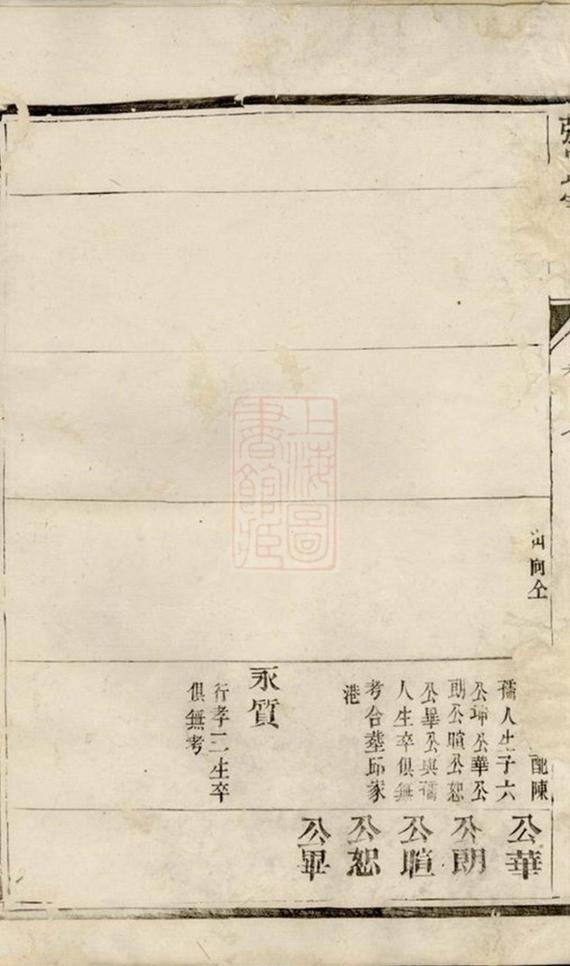 山向仝
配陳
孺人生子六
公埽公華公
朗公暄公恕
公畢公與孺
人生卒俱無
考合塟邱家
港
永質
行孝二生卒
俱無考
公華
公朗
公暄
公恕
公畢
上海圖
書館藏